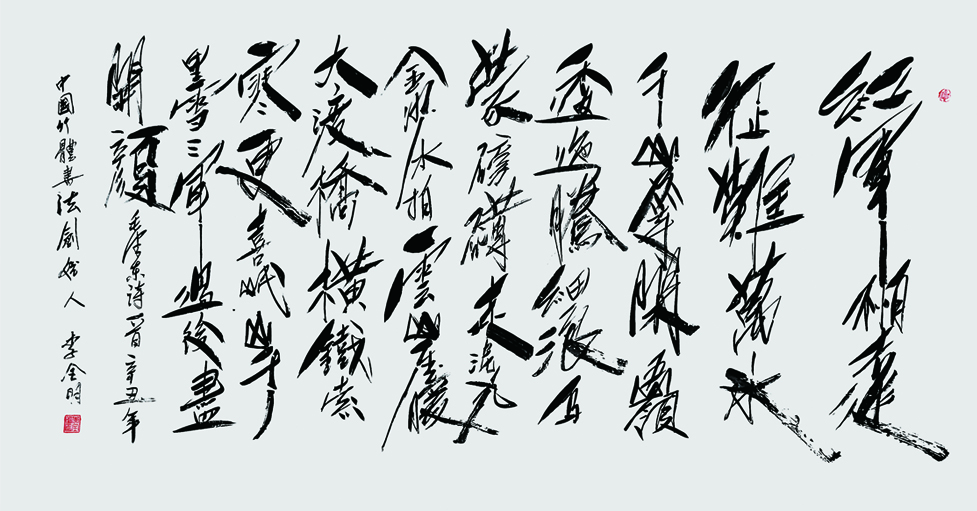 紅軍不怕遠
征難萬水
千山只等閑五嶺
逶迤騰細浪烏
蒙磅礴走泥丸
金沙水拍雲崖暖
大渡橋橫鐵索
寒更喜岷山千
里雪三軍過後盡
開顏 毛澤東詩一首 辛丑年
中國竹體書法創始人 李金明